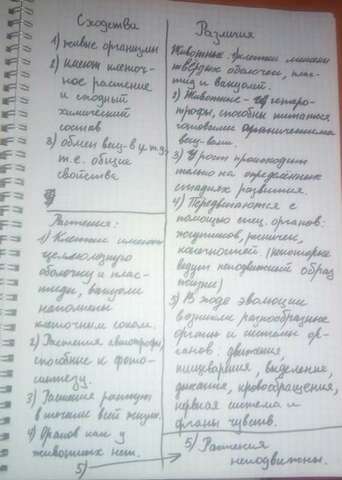 Сходства
1) живые организмы
2) имеют клеточ-
ное растение
и сходный
химический
состав
3) обмен вещ-в и т.д.
т.е. общие
свойства
Растения:
1) Клетки имеют
целлюлозную
оболочку и плас-
тиды, вакуоли
наполнены
клеточным соком.
2) Растения автотрофы,
способные к фото-
синтезу.
3) Растения растут
в течении всей жизни.
4) Органов как у
животных нет.
5)
Различия
Животные: клетки лишены
твёрдых оболочек, плас-
тид и вакуолей.
2) Животные - гетеро-
трофы, способны питаться
готовыми органическими
вещ-вами.
3) Рост происходит
только на определённых
стадиях развития.
4) Передвигаются с
помощью спец. органов:
жгутиков, ресничек,
конечностей. (некоторые
ведут неподвижный образ
жизни)
5) В ходе эволюции
возникли разнообразные
органы и системы ор-
ганов: движения
пищеварения, выделение,
дыхания, кровообращения,
нервная система и
органы чувств.
5) Растения
неподвижны.